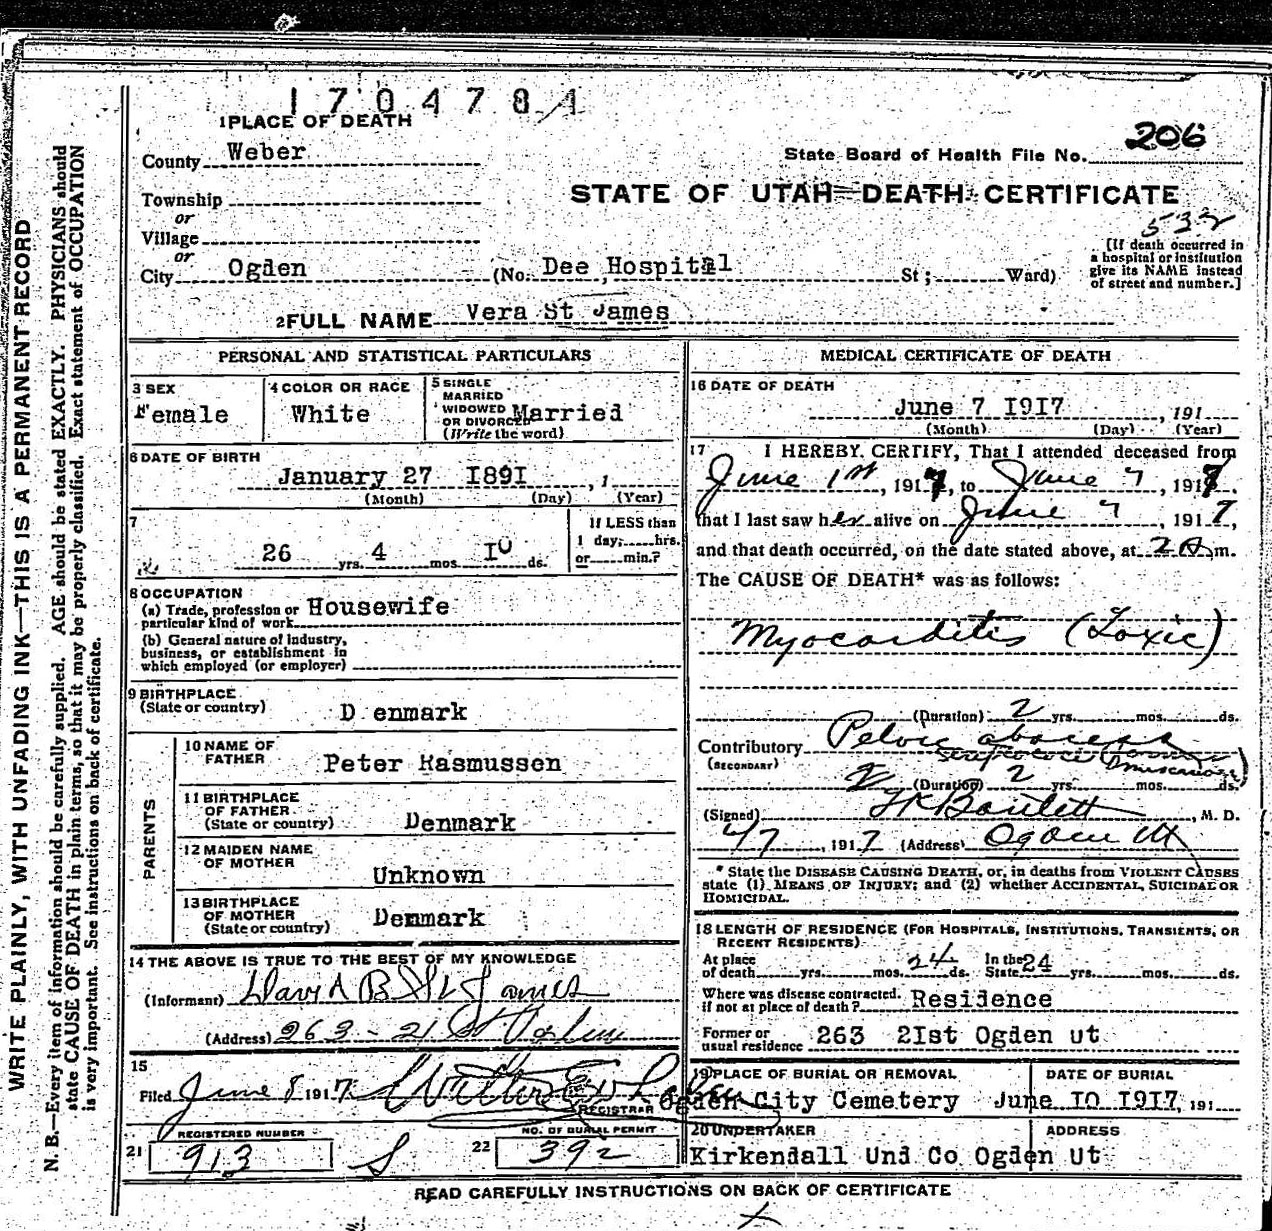 1704784
1 PLACE OF DEATH
County Weber
State Board of Health File No. 206
STATE OF UTAH—DEATH CERTIFICATE
Township
or
Village
or
532
[If death occurred in a hospital or institution give its NAME instead of street and number.]
City Ogden (No. Dee Hospital St; Ward)
2 FULL NAME Vera St James
PERSONAL AND STATISTICAL PARTICULARS
3 SEX
Female
4 COLOR OR RACE
White
5 SINGLE
MARRIED
WIDOWED
OR DIVORCED Married
(Write the word)
6 DATE OF BIRTH
January 27 I89I , 1
(Month) (Day) (Year)
7
26 yrs. 4 mos. I0 ds.
If LESS than
1 day, hrs.
or min.?
8 OCCUPATION
(a) Trade, profession or
particular kind of work Housewife
(b) General nature of industry,
business, or establishment in
which employed (or employer)
9 BIRTHPLACE
(State or country) D enmark
PARENTS
10 NAME OF
FATHER Peter Rasmussen
11 BIRTHPLACE
OF FATHER
(State or country) Denmark
12 MAIDEN NAME
OF MOTHER
Unknown
13 BIRTHPLACE
OF MOTHER
(State or country) Denmark
14 THE ABOVE IS TRUE TO THE BEST OF MY KNOWLEDGE
(Informant) David B St James
(Address) 263 - 21 St Ogden
15
Filed June 8 1917
REGISTRAR
REGISTERED NUMBER
21 913 S
NO. OF BURIAL PERMIT
22 392
MEDICAL CERTIFICATE OF DEATH
16 DATE OF DEATH
June 7 I9I7 , 191
(Month) (Day) (Year)
17 I HEREBY CERTIFY, That I attended deceased from
June 1st, 1917, to June 7, 1917
that I last saw her alive on June 7, 1917,
and that death occurred, on the date stated above, at 2 A m.
The CAUSE OF DEATH* was as follows:
Myocarditis (Toxic)
(Duration) 2 yrs. mos. ds.
Contributory Pelvic abscess
(SECONDARY) streptococci
2 (Duration) 2 yrs. mos. ds.
(Signed) Bartlett, M. D.
4/7, 1917 (Address) Ogden Ut
* State the DISEASE CAUSING DEATH, or, in deaths from VIOLENT CAUSES
state (1) MEANS OF INJURY; and (2) whether ACCIDENTAL, SUICIDAL OR
HOMICIDAL.
18 LENGTH OF RESIDENCE (FOR HOSPITALS, INSTITUTIONS, TRANSIENTS, OR
RECENT RESIDENTS)
At place
of death yrs. mos. 24 ds. In the
State 24 yrs. mos. ds.
Where was disease contracted,
if not at place of death? Residence
Former or
usual residence 263 2Ist Ogden ut
19 PLACE OF BURIAL OR REMOVAL
Ogden City Cemetery
DATE OF BURIAL
June I0 I9I7, 191
20 UNDERTAKER
Kirkendall Und Co
ADDRESS
Ogden Ut
READ CAREFULLY INSTRUCTIONS ON BACK OF CERTIFICATE
WRITE PLAINLY, WITH UNFADING INK—THIS IS A PERMANENT RECORD
N. B.—Every item of information should be carefully supplied. AGE should be stated EXACTLY. PHYSICIANS should
state CAUSE OF DEATH in plain terms, so that it may be properly classified. Exact statement of OCCUPATION
is very important. See instructions on back of certificate.